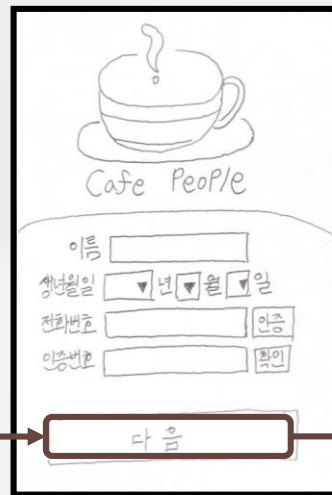 Cafe People
이름
생년월일 년 월 일
전화번호 인증
인증번호 확인
다음